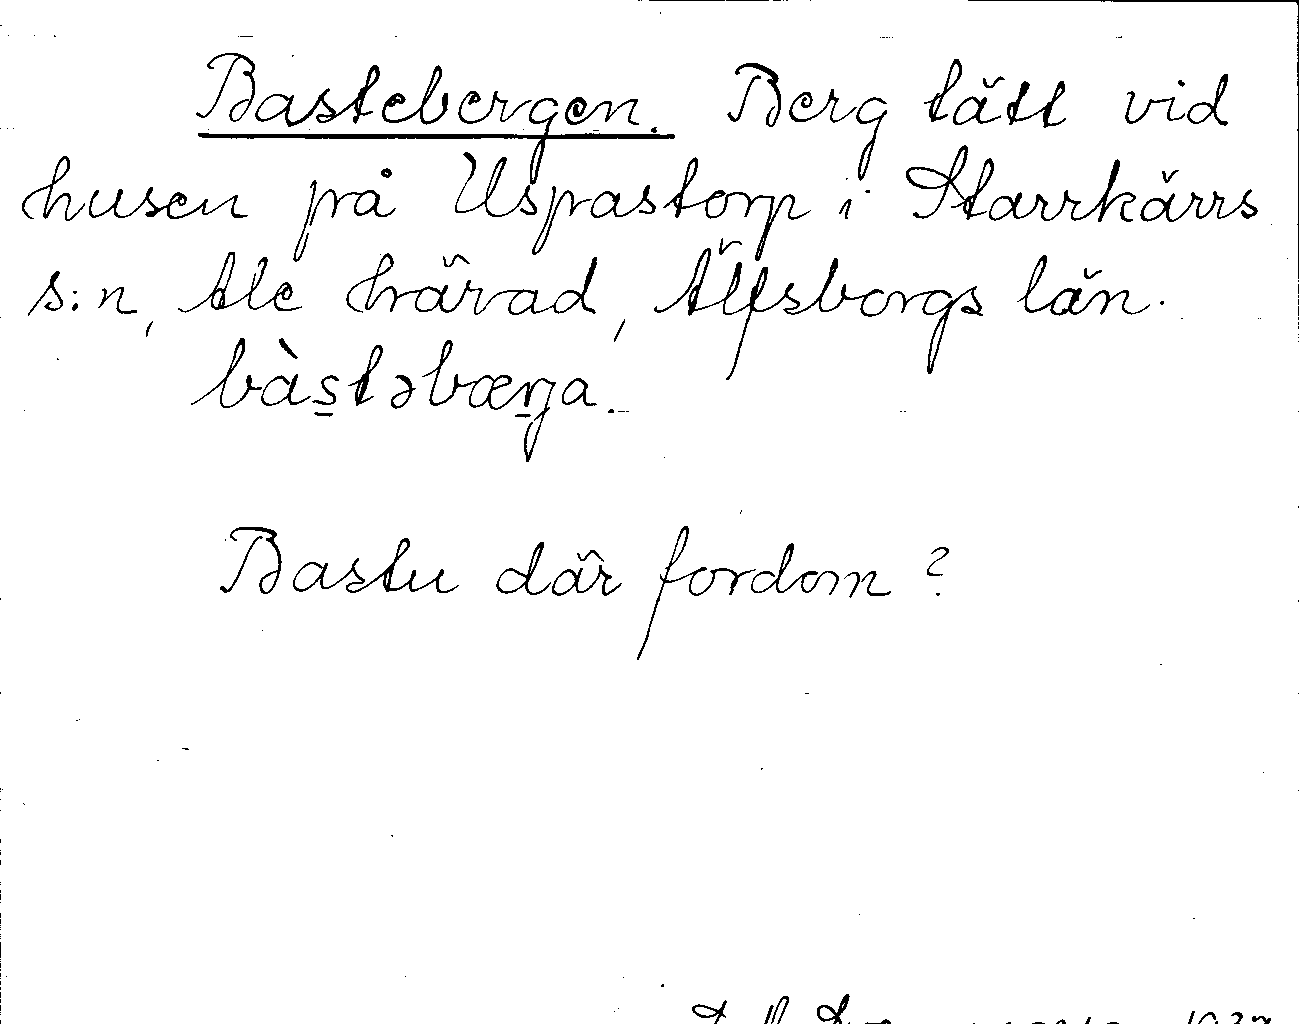 Bastebergen. Berg tätt vid
husen på Uspastorp i Starrkärrs
s:n, Ale härad, Älfsborgs län.
bàs̲təbæŋ̲a.
Bastu där fordom?